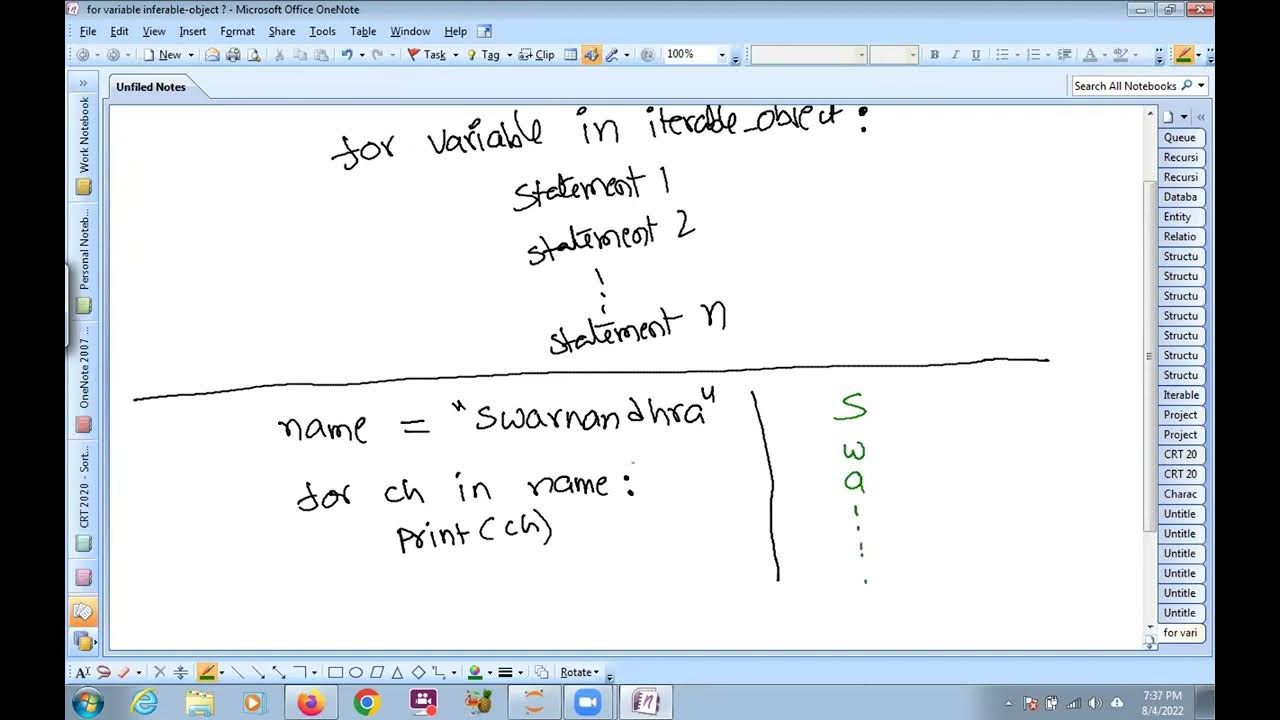 for variable inferable-object ? - Microsoft Office OneNote
File Edit View Insert Format Share Tools Table Window Help
New Task Tag Clip 100% B I U A ab
Unfiled Notes
Search All Notebooks
Work Notebook
Personal Noteb...
OneNote 2007 ...
CRT 2020 - Sort...
for variable in iterable_object :
statement 1
statement 2
⋮
statement n
name = "swarnandhra"
for ch in name :
print(ch)
S
w
a
⋮
Queue
Recursi
Recursi
Databa
Entity
Relatio
Structu
Structu
Structu
Structu
Structu
Structu
Structu
Iterable
Project
Project
CRT 20
CRT 20
Charac
Untitle
Untitle
Untitle
Untitle
Untitle
Untitle
for vari
Rotate
7:37 PM
8/4/2022